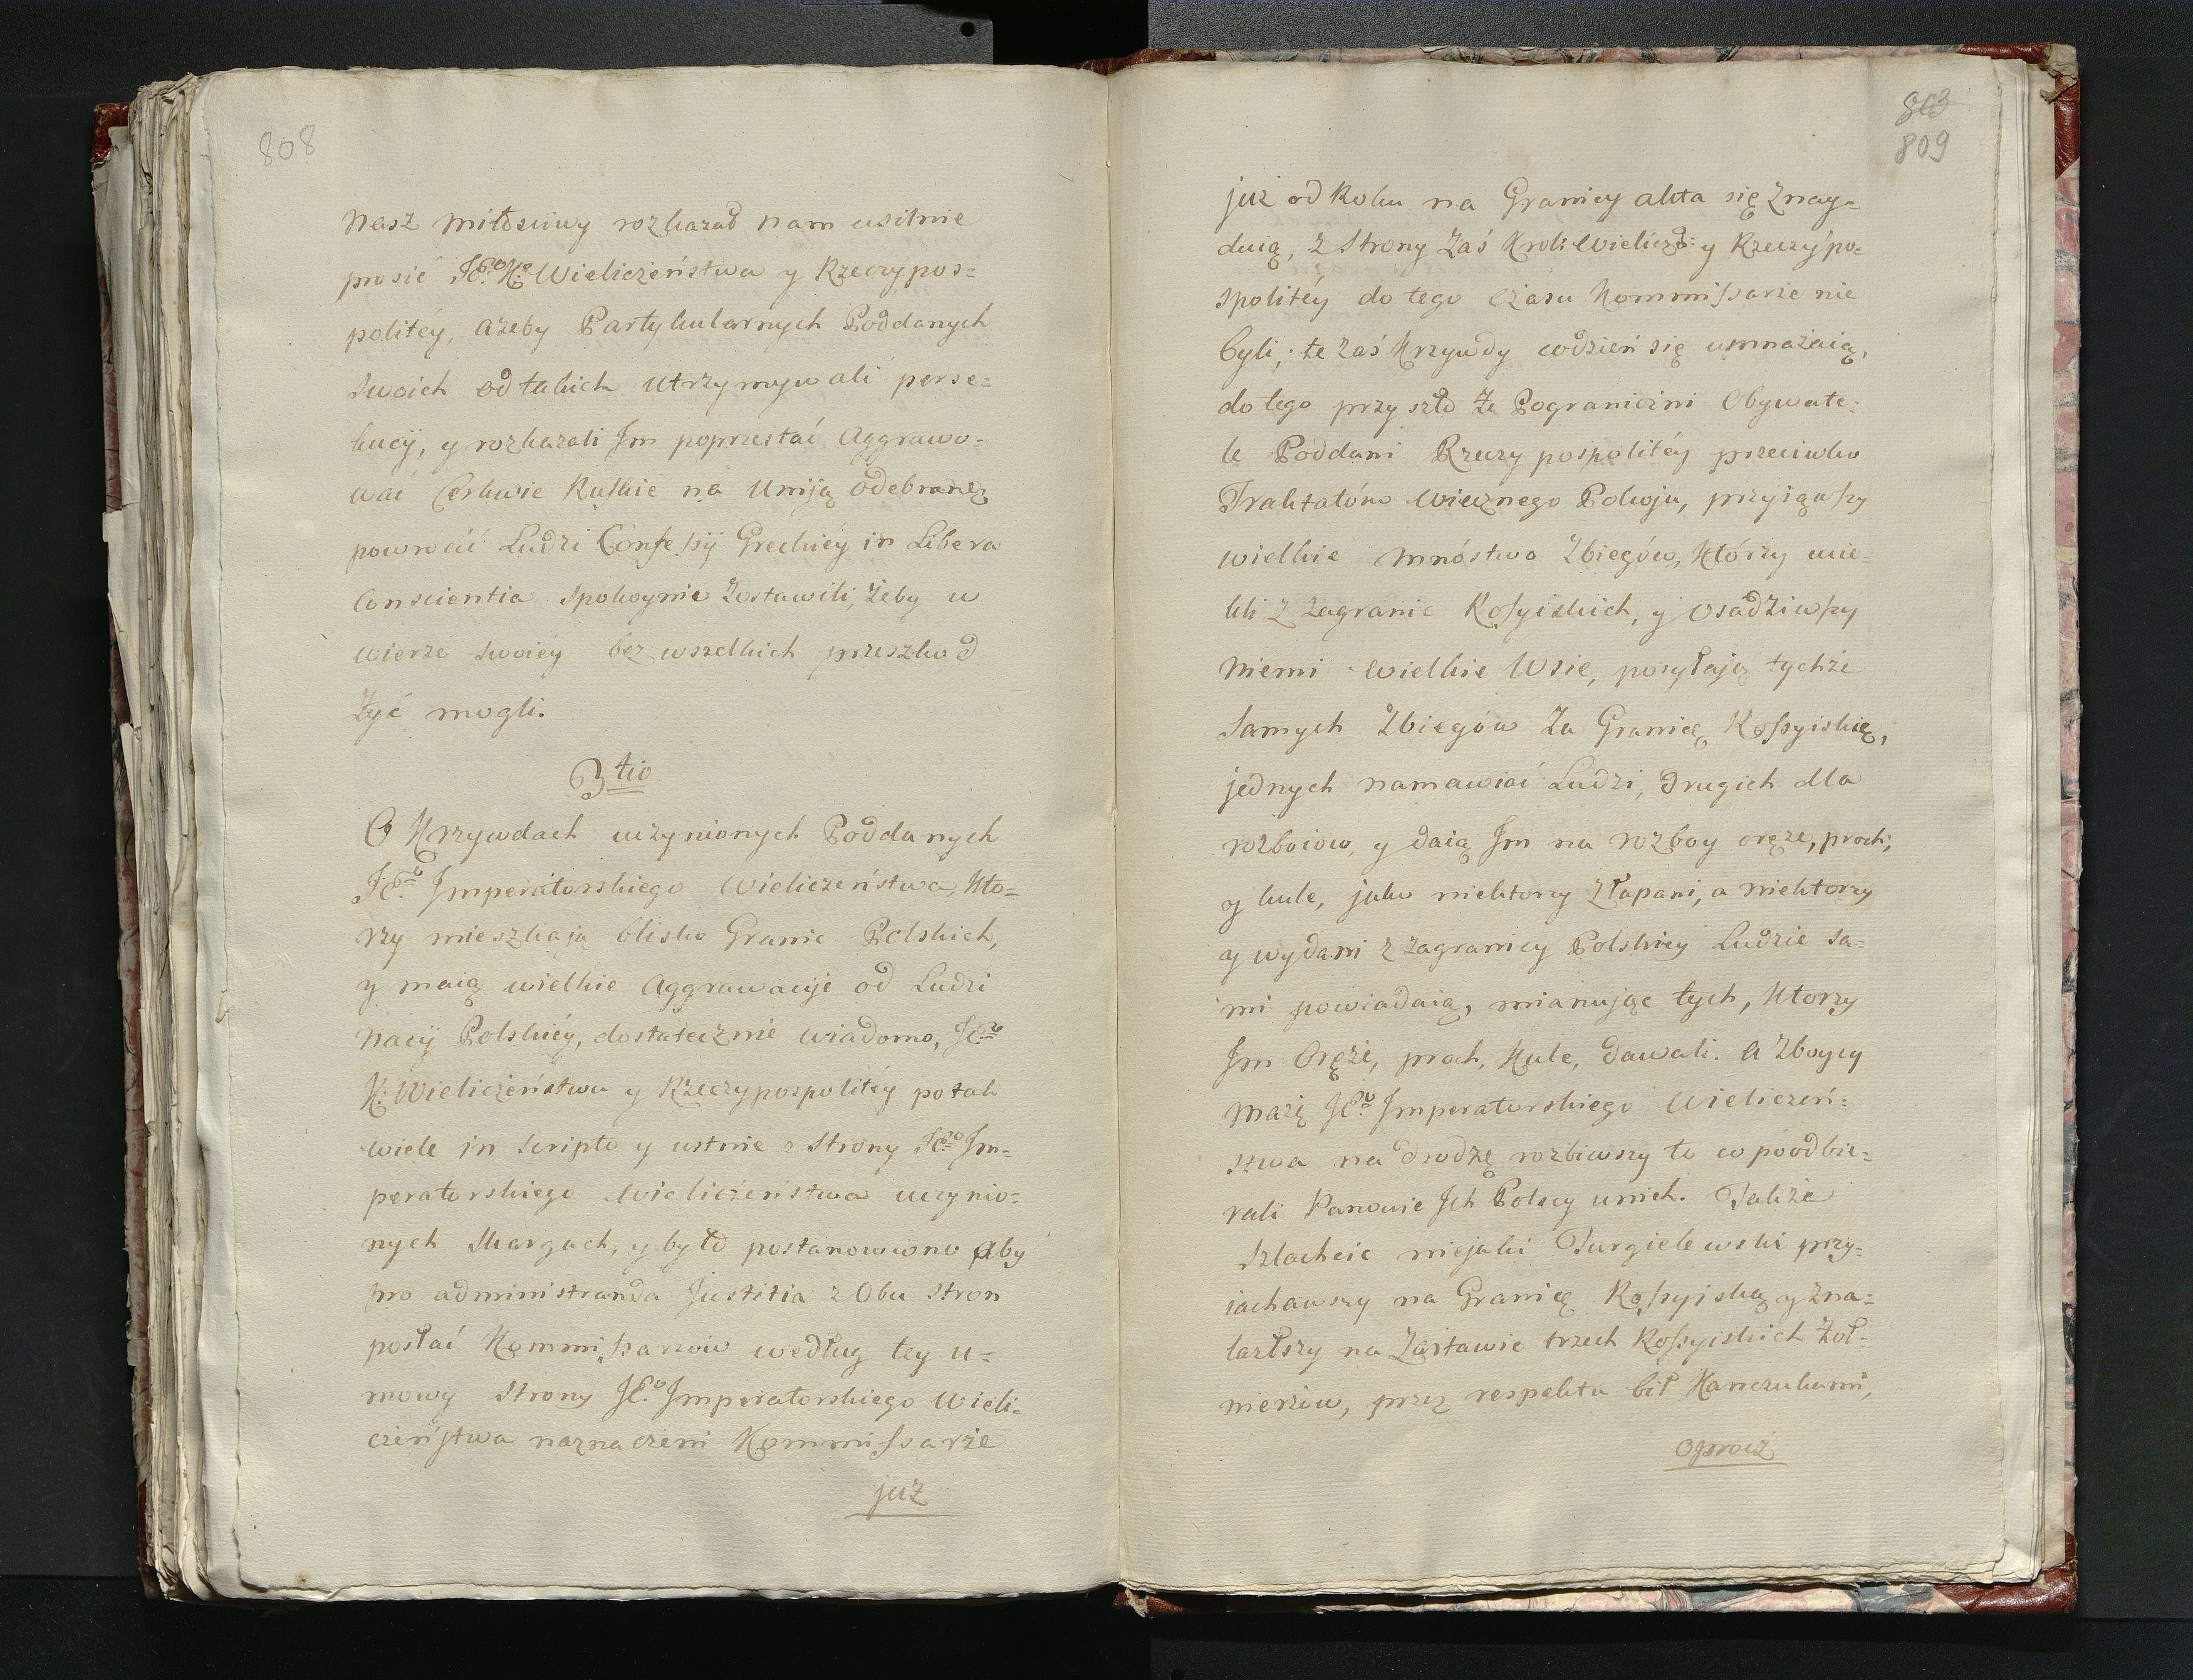 808
nasz miłosciwy rozkazał nam usilnie
prosić JEgo K: Wieliczeństwa y Rzeczypos=
politéy, ażeby Partykularnych Poddanych
swoich od takich utrzymywali perse=
kucÿ, y rozkazali Im poprzestać Aggrawo=
wać Cerkwie Ruskie na Uniją odebrane
powrócić Ludzi Confessÿ Greckiéy in Libera
Conscientia spokoynie Zostawili, żeby w
wierze swoiéy bez wszelkich przeszkod
żyć mogli.
3tio
O Krzywdach uczynionych Poddanych
JEgo Imperatorskiego Wieliczeństwa, kto=
rzy mieszkają blisko Granic Polskich,
y maią wielkie Aggrawacije od Ludzi
nacÿ Polskiéy, dostatecznie wiadomo, JEgo
K: Wieliczeństwu y Rzeczypospolitéy po tak
wiele in scripto y ustnie z Strony JEgo Im=
peratorskiego Wieliczeństwa uczynio=
nych skargach, y było postanowiono aby
pro administranda Justitia z Obu stron
posłać Kommissarzow według tey u=
mowy Strony JEo Imperatorskiego Wieli=
czeństwa naznaczeni Kommissarże
już
803
809
już od Roku na Granicy akta się Znay=
duią, z Strony Zaś Krol: Wielicz: y Rzeczypo=
spolitéy do tego Czasu Kommissarze nie
byli; te zaś Krzywdy codzień się umnażaią,
do tego przyszło że Pogranicżni Obywate=
le Poddani Rzeczypospolitéy przeciwko
Traktatów wiecznego Pokoju, przyiąwszy
wielkie mnóstwo Zbiegów, Którzy ucie=
kli z zagranic Rossyiskich, y osadziwszy
niemi wielkie Wsie, posyłają tychże
samych Zbiegów Za Granicę Rossyiskię,
jednych namawiać Ludzi, drugich dla
rozboiow, y daią Im na rozboy oręże, proch,
y kule, jako niektorzy złapani, a niektorzy
y wydani z zagranicy Polskiey Ludzie sa=
mi powiadaią, mianując tych, Ktorzy
Im Oręże, proch, Kule, dawali. A Zboycy
mażę JEgo Imperatorskiego Wieliczeń=
stwa na drodzę rozbiwszy to co poodbie=
rali Panowie Ich Polscy u nich. Także
szlachcic niejaki Turgielewski przy=
iachawszy na Granicę Rossyiską y zna=
lazłszy na Zastawie trzech Rossyiskich Zoł=
nierzów, przez respektu bił Kanczukami,
oprocz